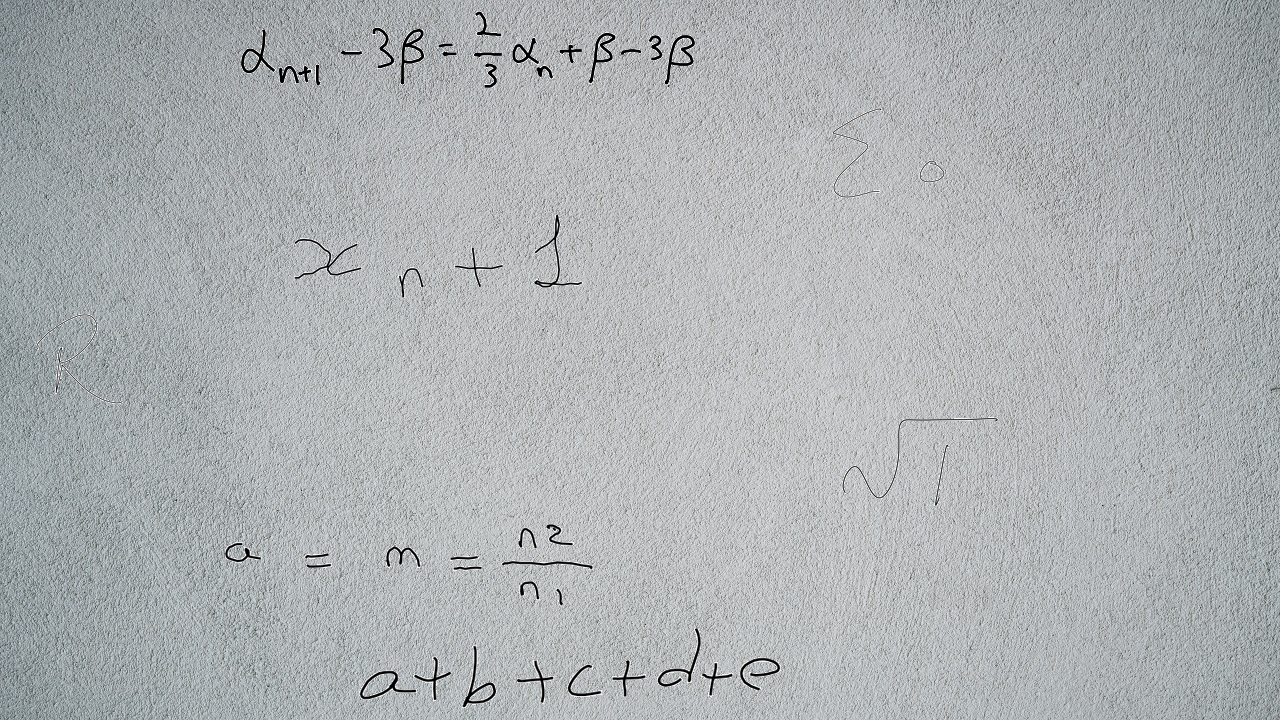 α_{n+1} - 3β = \frac{2}{3} α_n + β - 3β
Σ_0
x_{n+1}
R
\sqrt{1}
a = m = \frac{n_2}{n_1}
a+b+c+d+e